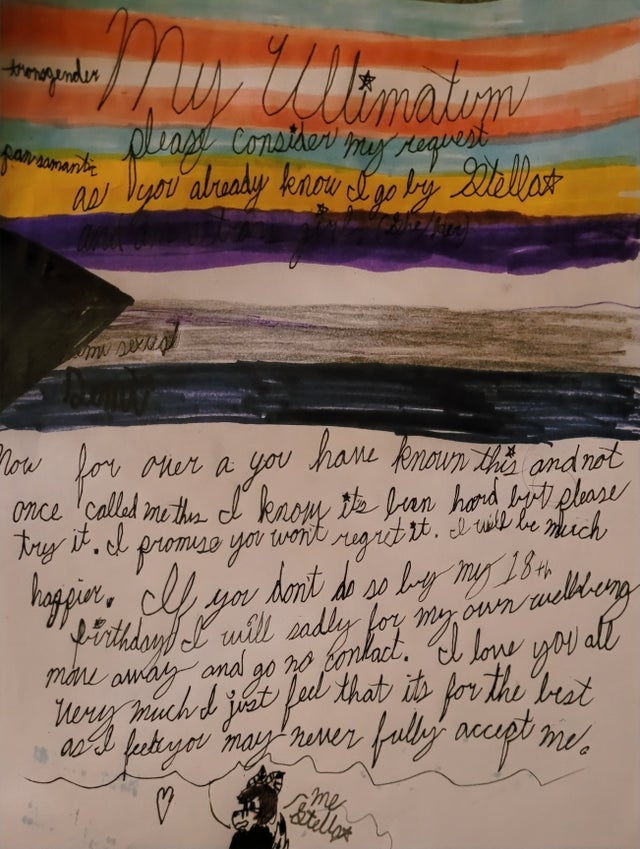 My Ultimatum
transgender
please consider my request
pansamantic
as you already know I go by Stella
and am a trans girl. (she/her)
sexual
now for over a you have known this and not
once called me this I know its been hard but please
try it. I promise you wont regret it. I will be much
happier. If you dont do so by my 18th
birthday I will sadly for my own wellbeing
move away and go no contact. I love you all
very much I just feel that its for the best
as I feel you may never fully accept me.
me
Stella